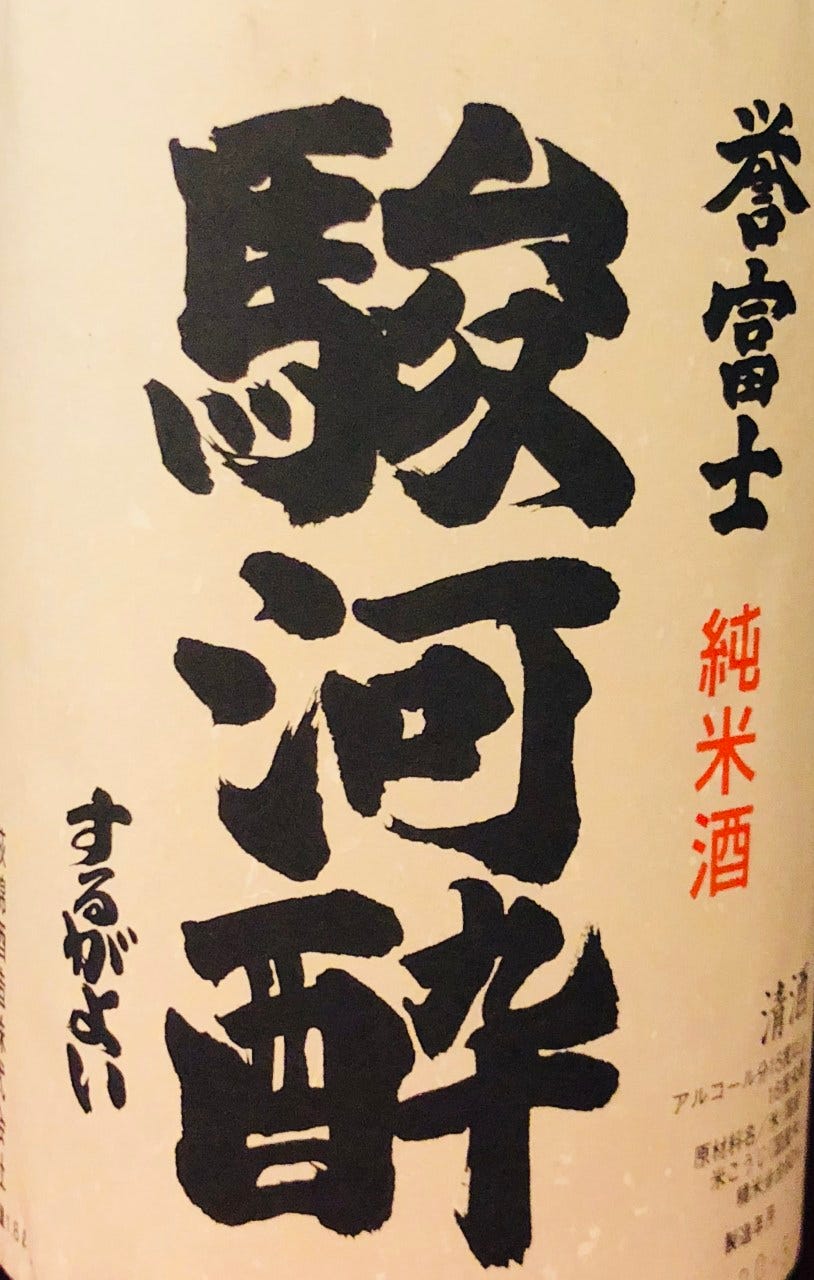 誉富士
純米酒
駿河酔
するがよい
清酒
アルコール分15度
原材料名/米
米こうじ
製造年月